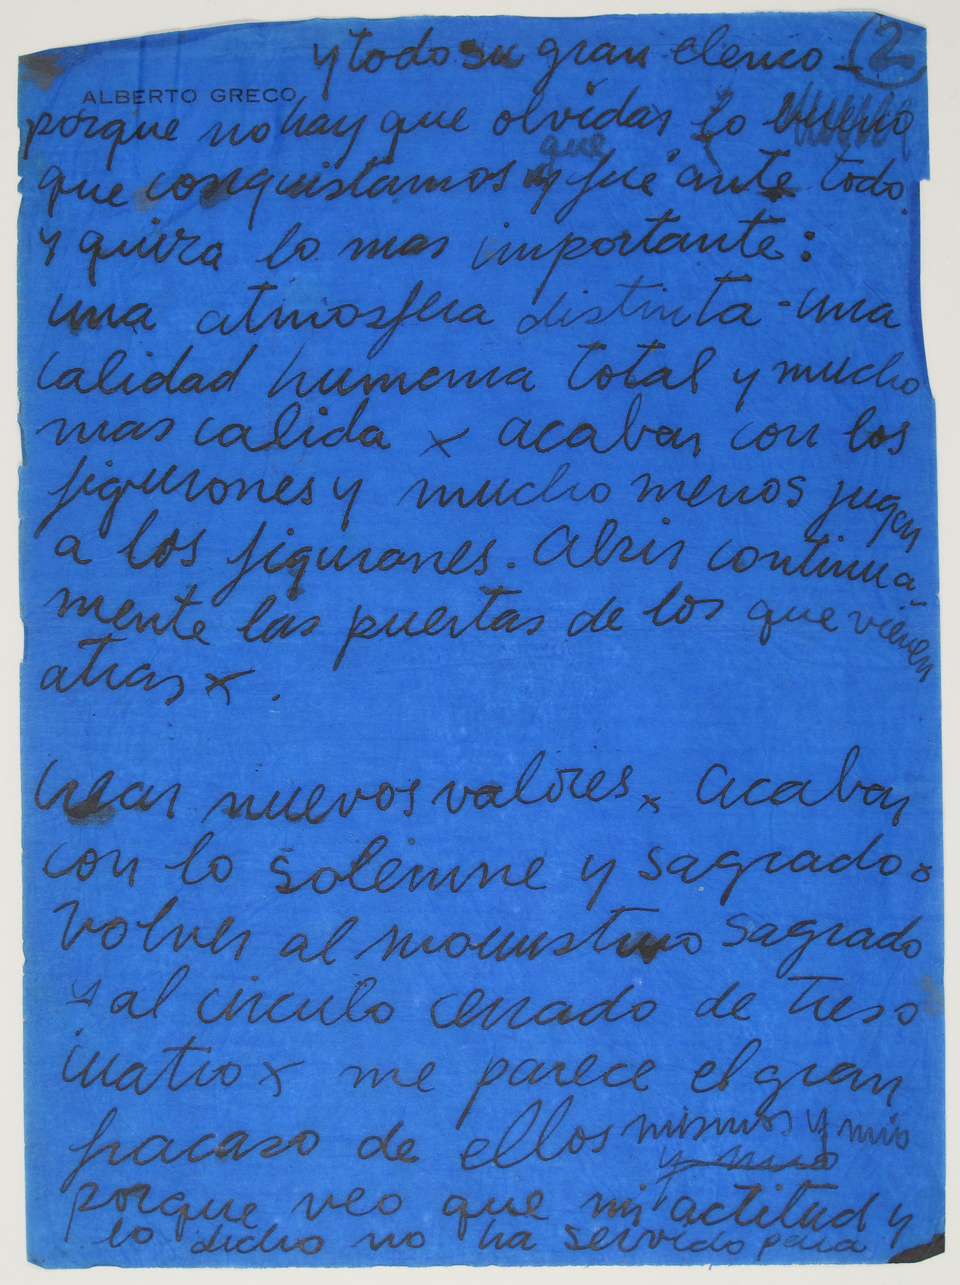 y todo su gran elenco - 2
ALBERTO GRECO
porque no hay que olvidar lo bueno
que
que conquistamos y fué ante todo
y quiza lo mas importante:
una atmosfera distinta - una
calidad humana total y mucho
mas calida x acabar con los
figurones y mucho menos jugar
a los figurones. Abrir continua-
mente las puertas de los que vienen
atras x .
Crear nuevos valores x acabar
con lo solemne y sagrado x
volver al monustruo sagrado
y al circulo cerrado de tres o
cuatro x me parece el gran
fracaso de ellos mismos y mio
y mio
porque veo que mi actitud y
lo dicho no ha servido para